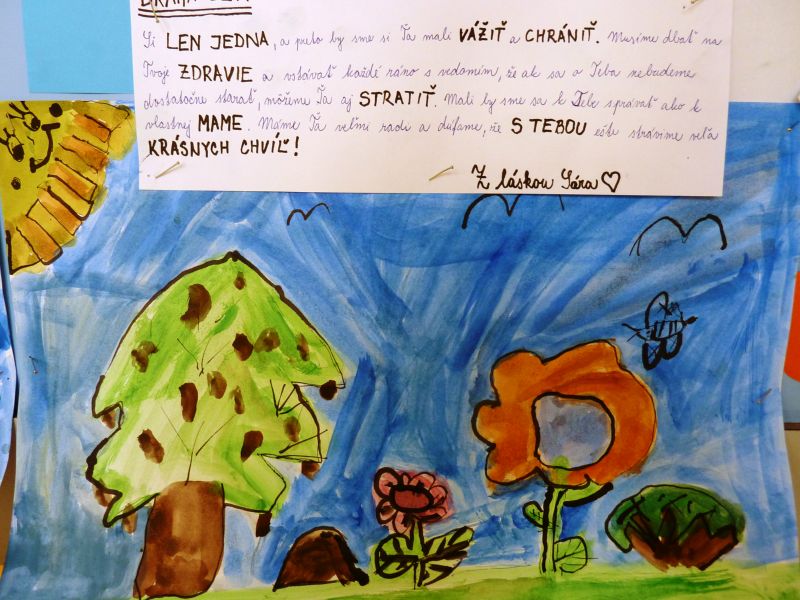 Si LEN JEDNA, a preto by sme si Ťa mali VÁŽIŤ a CHRÁNIŤ. Musíme dbať na
Tvoje ZDRAVIE a vstávať každé ráno s vedomím, že ak sa o Teba nebudeme
dostatočne starať, môžeme Ťa aj STRATIŤ. Mali by sme sa k Tebe správať ako k
vlastnej MAME. Máme Ťa veľmi radi a dúfame, že S TEBOU ešte strávime veľa
KRÁSNYCH CHVÍĽ!
Z láskou Sára